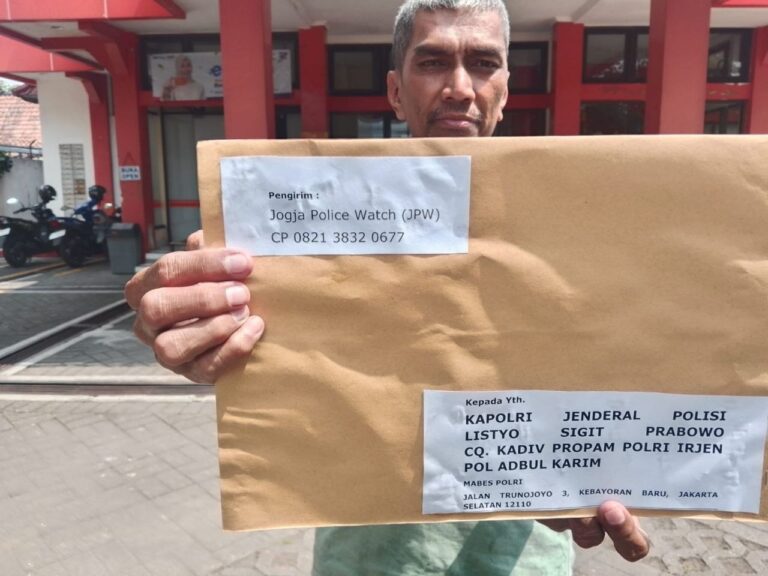 BUKA
OPEN
Pengirim :
Jogja Police Watch (JPW)
CP 0821 3832 0677
Kepada Yth.
KAPOLRI JENDERAL POLISI
LISTYO SIGIT PRABOWO
CQ. KADIV PROPAM POLRI IRJEN
POL ADBUL KARIM
MABES POLRI
JALAN TRUNOJOYO 3, KEBAYORAN BARU, JAKARTA
SELATAN 12110